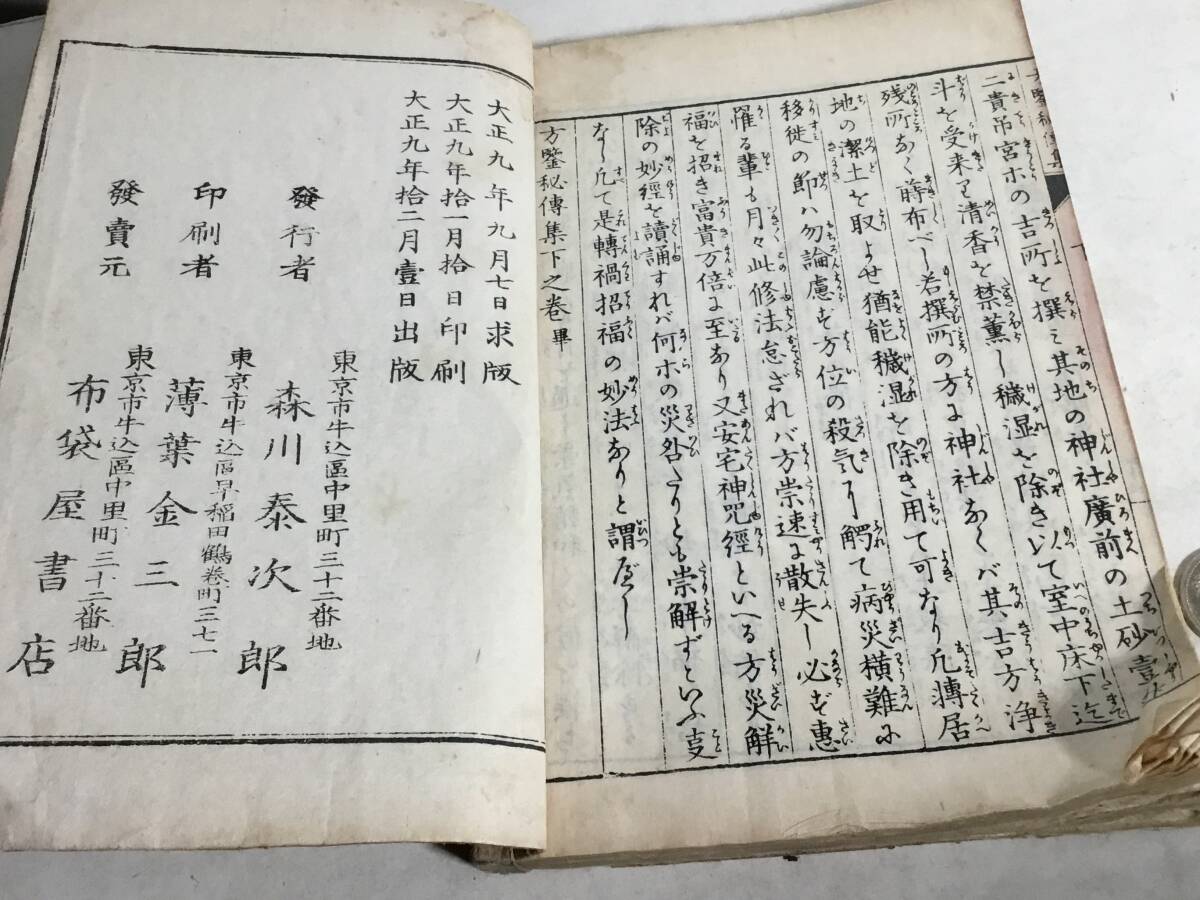 二貴吊宮ホの吉所を撰ミ其地の神社廣前の土砂壹
斗を受来り清香を禁薫し穢湿を除き以て室中床下迄
残所なく蒔布べし若撰所の方に神社なくバ其吉方浄
地の潔土を取よせ猶能穢湿を除き用て可なり凡轉居
移徙の節ハ勿論慮ず方位の殺気に觸て病災横難に
罹る輩も月々此修法怠ざれバ方崇速に散失し必ず惠
福を招き富貴万倍に至なり又安宅神咒經といへる方災解
除の妙經を讀誦すれバ何ホの災咎たりとも崇解ずといふ支
なし凡て是轉禍招福の妙法なりと謂べし
方鑒秘傳集下之巻畢
大正九年九月七日求版
大正九年拾一月拾日印刷
大正九年拾二月壹日出版
東京市牛込區中里町三十二番地
發行者 森川泰次郎
東京市牛込區早稲田鶴巻町三七一
印刷者 薄葉金三郎
東京市牛込區中里町三十二番地
發賣元 布袋屋書店